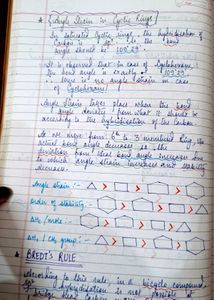 * Angle Strain in Cyclic Rings
In saturated cyclic rings, the hybridisation of
carbon is sp3, so the bond
angle should be 109°29'
It is observed that in case of cyclohexane
the bond angle is exactly 109°29'
there is no angle strain in case
of cyclohexane
Angle strain takes place when the bond
angle deviates from what it should be
according to the hybridisation of the carbon
As we move from 6 to 3 membered ring, the
actual bond angle decreases so the
deviation from ideal bond angle increases due
to which angle strain increases and stability
decreases
Angle strain :- > > >
Order of stability :- > > >
/ mole :- > > >
/ CH2 group :- > > >
* BREDT'S RULE
According to this rule, in a bicyclo compound
sp2 hybridisation is not possible at
bridge